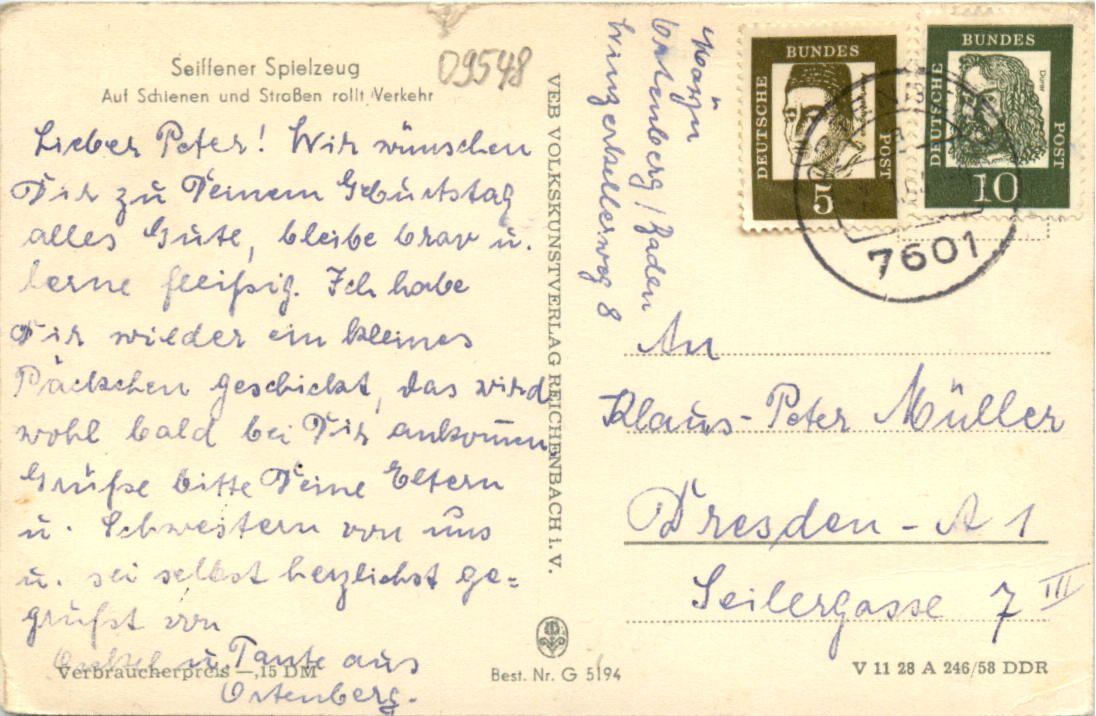 Seiffener Spielzeug
Auf Schienen und Straßen rollt Verkehr
09548
Lieber Peter! Wir wünschen
Dir zu Deinem Geburtstag
alles Gute, bleibe brav u.
lerne fleißig. Ich habe
Dir wieder ein kleines
Päckchen geschickt, das wird
wohl bald bei Dir ankommen.
Grüße bitte Deine Eltern
u. Schwestern von uns
u. sei selbst herzlichst ge=
grüßt von
Onkel u. Tante aus
Ortenberg.
Verbraucherpreis —,15 DM
VEB VOLKSKUNSTVERLAG REICHENBACH i. V.
Best. Nr. G 5194
Ortenberg / Baden
Winzerkellerweg 8
DEUTSCHE BUNDES POST
5
DEUTSCHE BUNDES POST
Dürer
10
7601
An
Klaus-Peter Müller
Dresden - A 1
Seilergasse 7 III
V 11 28 A 246/58 DDR